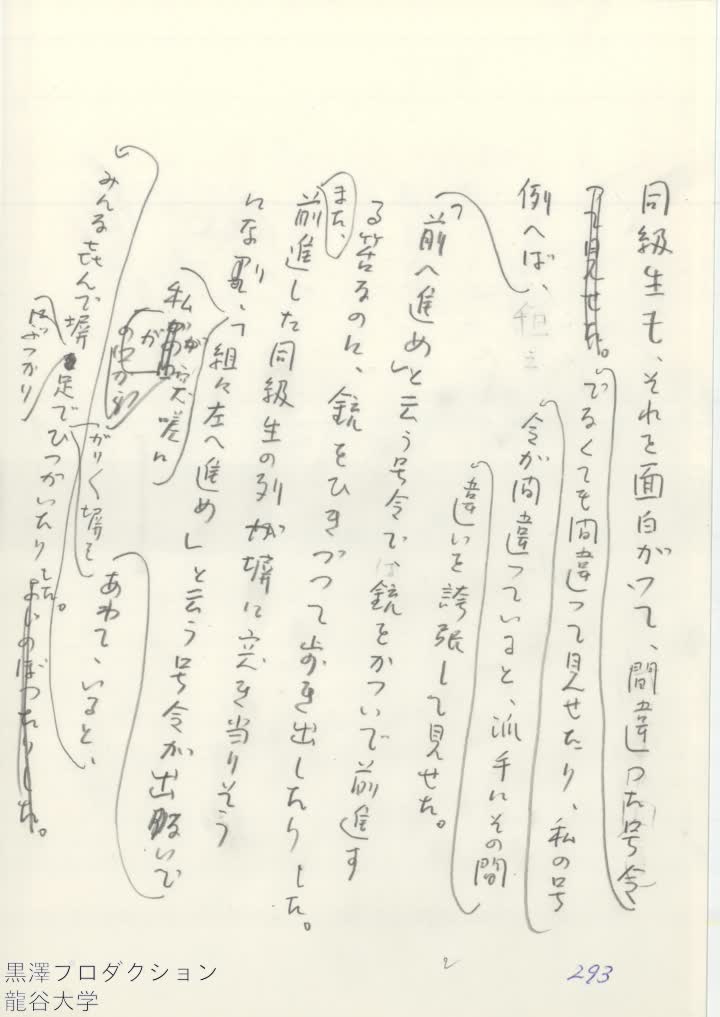 同級生も、それを面白がつて、間違つた号令
で見せた。でなくても間違つて見せたり、私の号
令が間違つていると、派手にその間
違いを誇張して見せた。
例へば、
「前へ進め」と云う号令では銃をかついで前進す
る筈なのに、銃をひきづつて歩き出したりした。
また、
前進した同級生の列が塀に突き当りそう
になり、「組々左へ進め」と云う号令が出ないで
私が突嗟に
あわていると、
みんな喜んで塀
がりがり塀を
足でひつかいたりした。
よじのぼつたりした。
293
黒澤プロダクション
龍谷大学